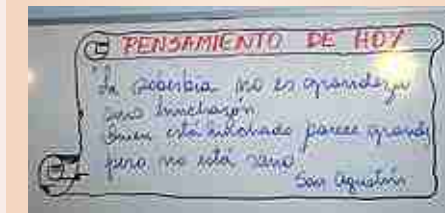 PENSAMIENTO DE HOY
"La soberbia no es grandeza
sino hinchazón
Quien está hinchado parece grande
pero no está sano
San Agustín